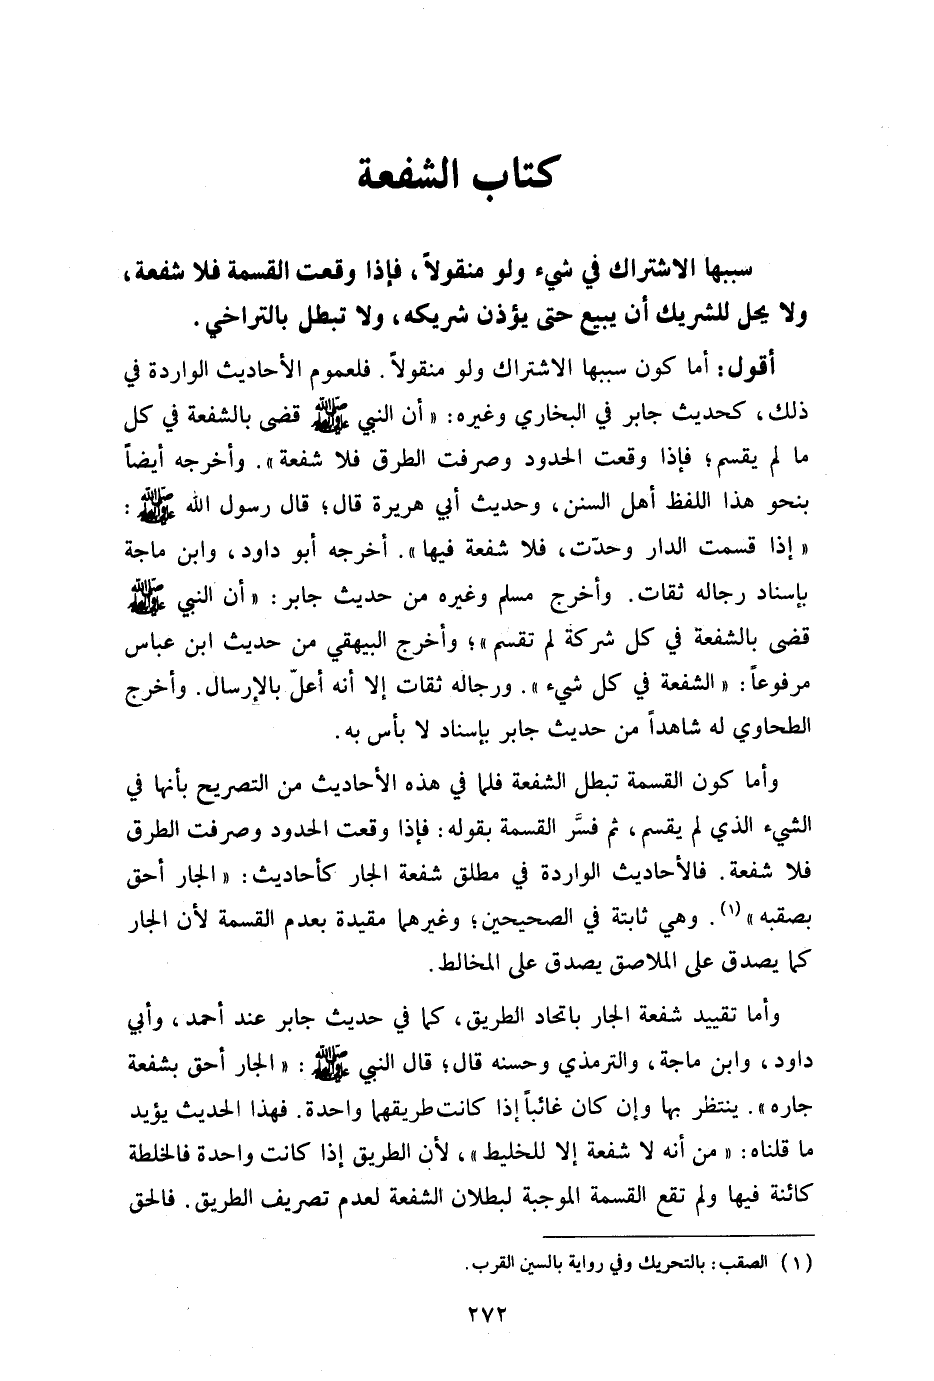 كتاب الشفعة
سببها الاشتراك في شيء ولو منقولاً، فإذا وقعت القسمة فلا شفعة،
ولا يحل للشريك أن يبيع حتى يؤذن شريكه، ولا تبطل بالتراخي.
أقول: أما كون سببها الاشتراك ولو منقولاً. فلعموم الأحاديث الواردة في
ذلك، كحديث جابر في البخاري وغيره: «أن النبي ﷺ قضى بالشفعة في كل
ما لم يقسم؛ فإذا وقعت الحدود وصرفت الطرق فلا شفعة». وأخرجه أيضاً
بنحو هذا اللفظ أهل السنن، وحديث أبي هريرة قال؛ قال رسول الله ﷺ:
«إذا قسمت الدار وحدّت، فلا شفعة فيها». أخرجه أبو داود، وابن ماجة
بإسناد رجاله ثقات. وأخرج مسلم وغيره من حديث جابر: «أن النبي ﷺ
قضى بالشفعة في كل شركة لم تقسم»؛ وأخرج البيهقي من حديث ابن عباس
مرفوعاً: «الشفعة في كل شيء». ورجاله ثقات إلا أنه أعلّ بالإرسال. وأخرج
الطحاوي له شاهداً من حديث جابر بإسناد لا بأس به.
وأما كون القسمة تبطل الشفعة فلما في هذه الأحاديث من التصريح بأنها في
الشيء الذي لم يقسم، ثم فسَّر القسمة بقوله: فإذا وقعت الحدود وصرفت الطرق
فلا شفعة. فالأحاديث الواردة في مطلق شفعة الجار كأحاديث: «الجار أحق
بصقبه»(١). وهي ثابتة في الصحيحين؛ وغيرهما مقيدة بعدم القسمة لأن الجار
كما يصدق على الملاصق يصدق على المخالط.
وأما تقييد شفعة الجار باتحاد الطريق، كما في حديث جابر عند أحمد، وأبي
داود، وابن ماجة، والترمذي وحسنه قال؛ قال النبي ﷺ: «الجار أحق بشفعة
جاره». ينتظر بها وإن كان غائباً إذا كانت طريقهما واحدة. فهذا الحديث يؤيد
ما قلناه: «من أنه لا شفعة إلا للخليط»، لأن الطريق إذا كانت واحدة فالخلطة
كائنة فيها ولم تقع القسمة الموجبة لبطلان الشفعة لعدم تصريف الطريق. فالحق
(١) الصقب: بالتحريك وفي رواية بالسين القرب.
٢٧٢